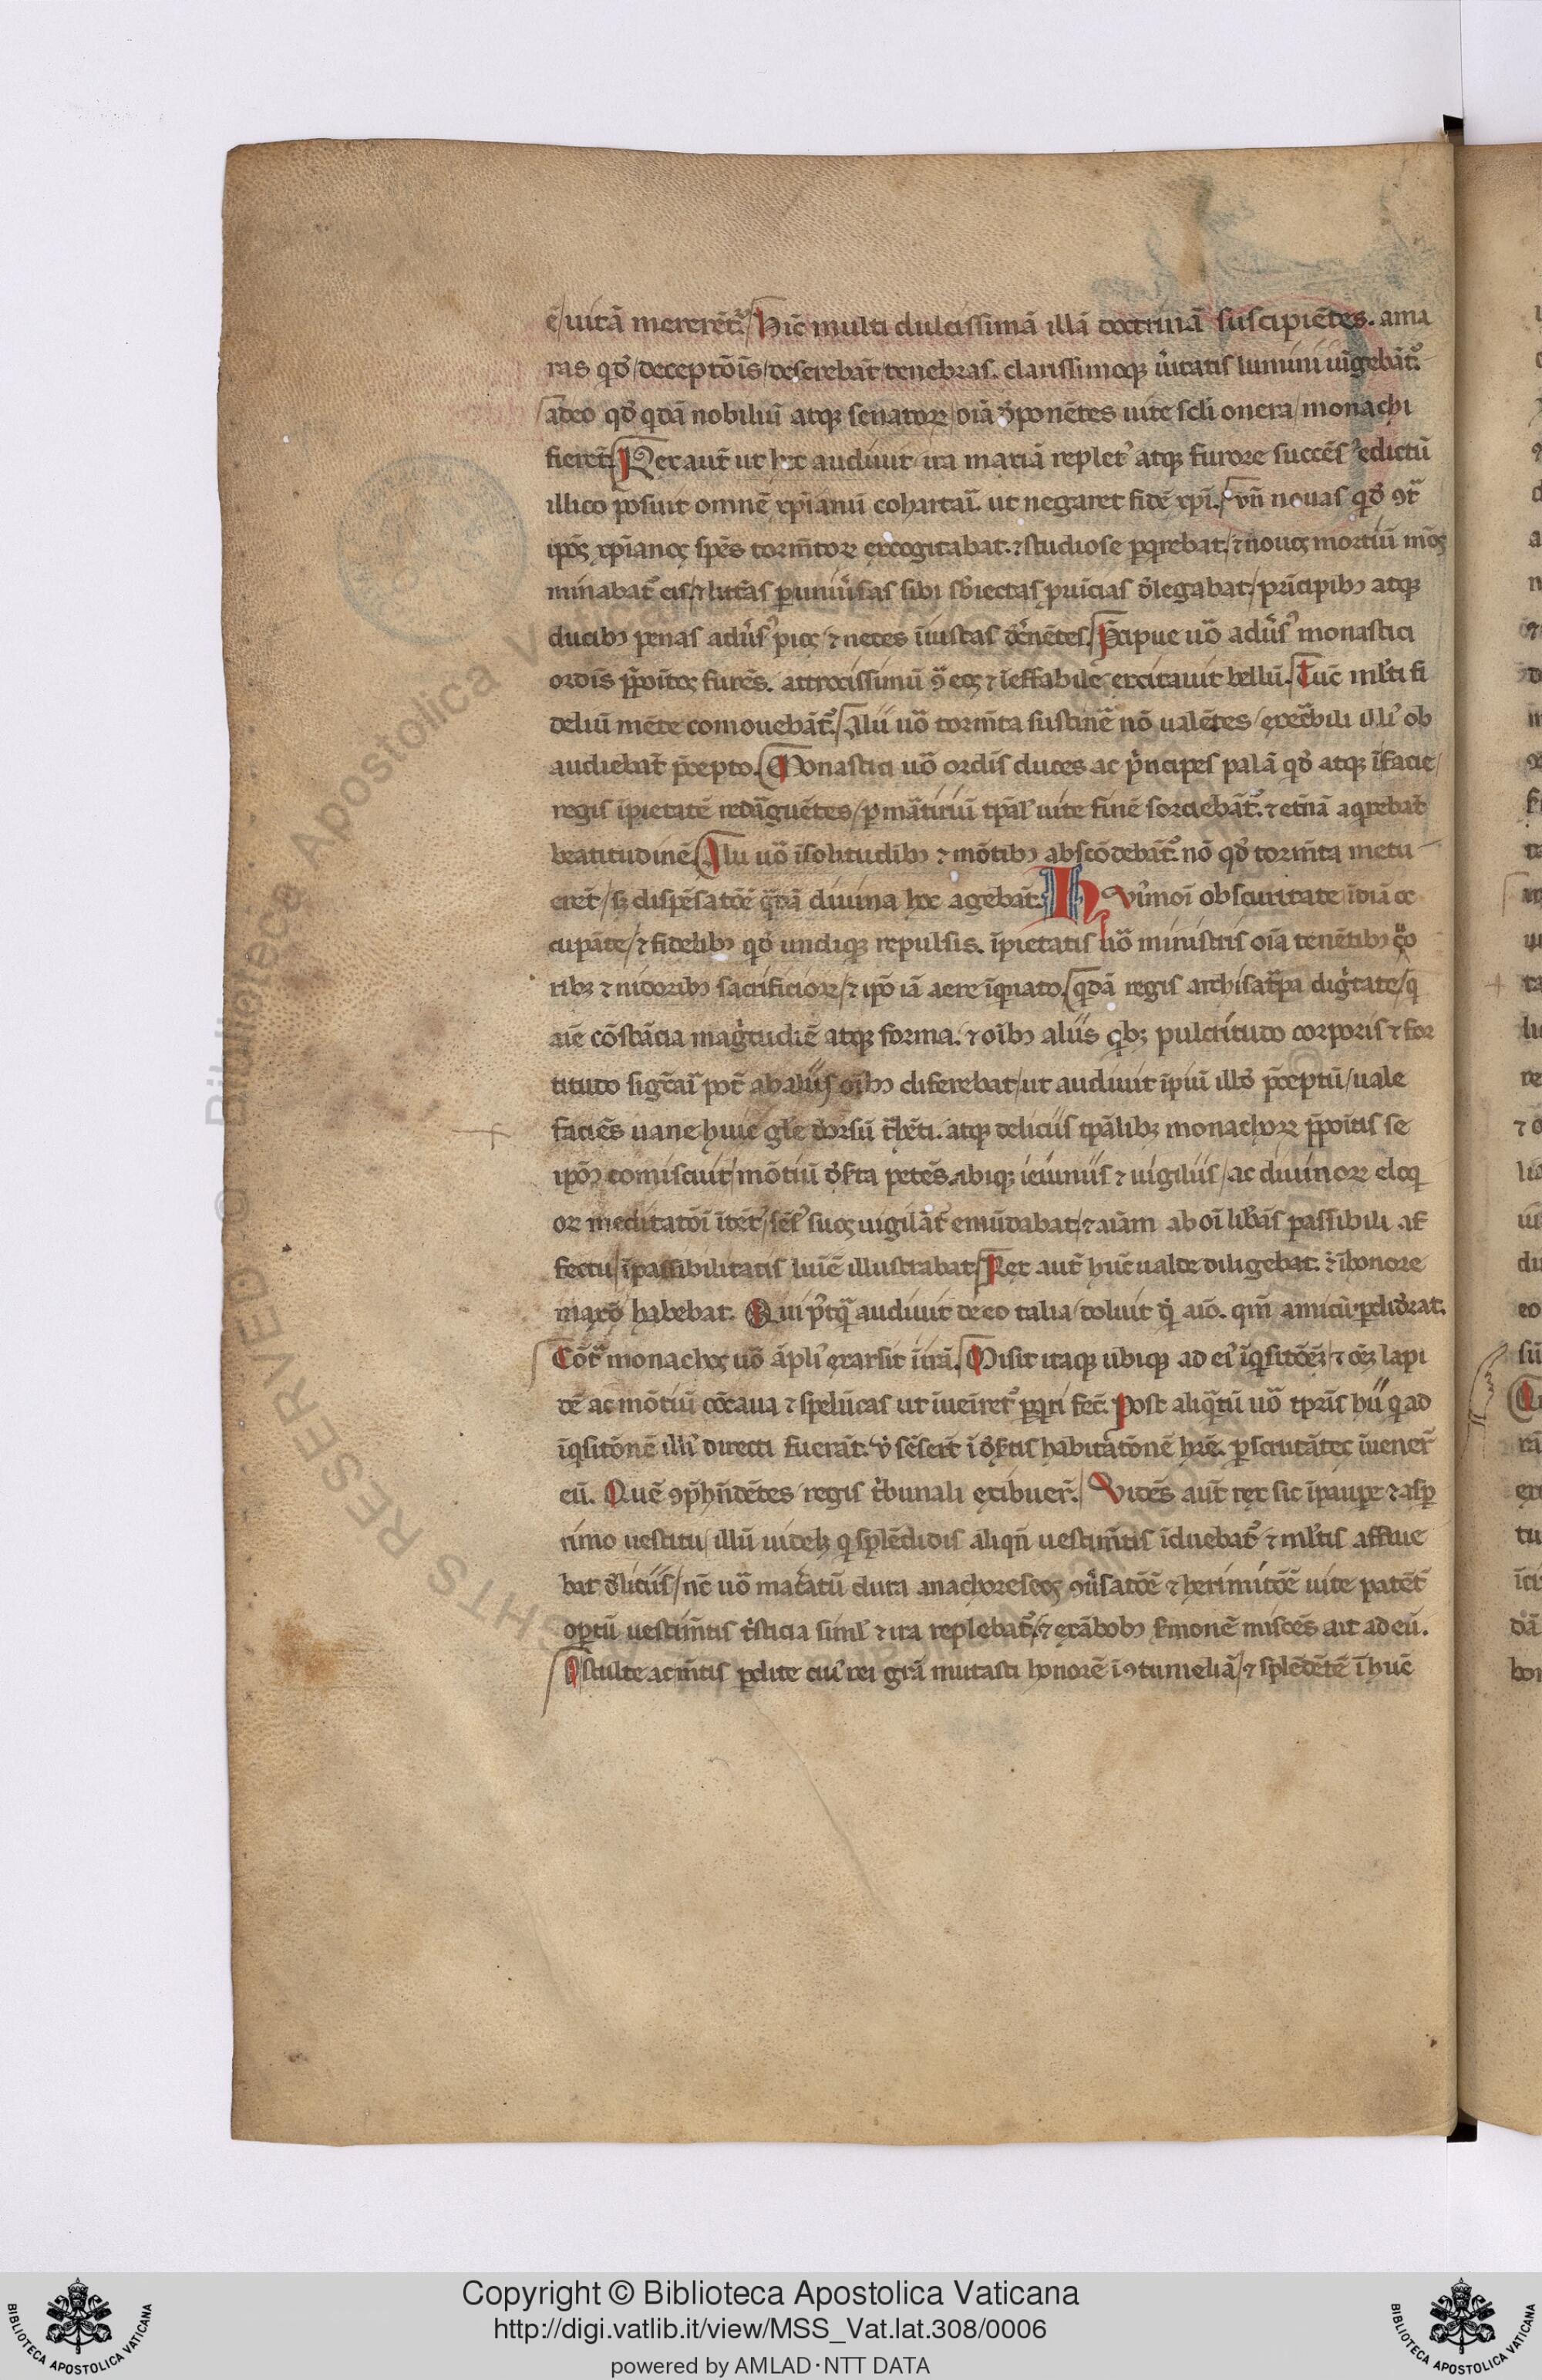 ē uitā mererēt᷑. Hīc multi dulcissimā illā doctrinā suscipiētes. ama
ras qd̓ deceptōis deserebāt tenebras. clarissimoq; ūitatis lumini iūgebāt᷑.
adeo qd̓ qdā nobiliū atq; senatoꝝ oīa d̓ponētes uite scl̄i onera monachi
fierēt. Rex aut̄ ut hec audiuit ira maxīa replet᷒ atq; furore succēs᷒ edictū
illico p̄posuit omnē xp̄ianū cohartaī. ut negaret fidē xp̄i. vn̄ nouas qd̓ ꝯt̄
ip̄os xp̄ianos sp̄es torm̄toꝝ excogitabat. ⁊ studiose ꝑqrebat. ⁊ nouos mortiū mōs
minabat᷑ eis. ⁊ litt̄as ꝑ uniu̓sas sibi sb̓iectas ꝓuicias d̓legabat. pr̄icipibꝫ atq;
ducibꝫ penas adu̓s᷒ pios ⁊ neces iniustas d̓c̓nētes. P̄cipue uo᷑ adu̓s᷒ monastici
ordīs p̄poītos furēs. attrocissimū ꝯ̄ eos ⁊ īeffabilē excitauit bellū. Tūc ml̓ti fi
deliū mēte comouebāt᷑. Alii uo᷑ torm̄ta sustinē nō ualētes execb̄ili illi᷒ ob
audiebāt p̄cepto. Monastici uo᷑ ordīs duces ac p̓ncipes palā qd̓ atq; ī facie
regis īpietatē redāguētes ꝑ mātiriū tp̄al᷒ uite finē sorciebāt᷑. ⁊ et̄nā aqrebāt
beatitudinē. Alii uo᷑ ī solitudibꝫ ⁊ mōtibꝫ abscōdebāt᷑ nō qd̓ torm̄ta metu
erēt sꝫ dispēsatōē qdā diuina hoc agebāt. Hvi᷒moī obscuritate īdiā oc
cupāte ⁊ fidelibꝫ qd̓ undiq; repulsis. īpietatis uo᷑ ministris oīa tenētibꝫ c̄ꝛo
ribꝫ ⁊ nidoribꝫ sacrificioꝝ ⁊ ip̄o iā aere īqnato. qdā regis archisat̄pa dig̓tate q
aīe cōstācia mag̓tudīe atq; forma. ⁊ oībꝫ aliis qbꝫ pulcritudo corporis ⁊ for
titudo sig̓caī pot̄ ab aliis oībꝫ diferebat ut audiuit īpiū illd̓ p̄ceptū uale
faciēs uane huic gl̄e deorsū t̄hēti. atq; deliciis tp̄alibꝫ monachoꝝ p̄poītis se
ip̄ō comiscuit mōtiū d̓s̓ta petēs. ibiq; ieiuniis ⁊ uigiliis ac diuinoꝝ eloq
oꝝ meditatōi ītēt᷒ sēs᷒ suos uigilāt᷑ emūdabat. ⁊ aīam ab oī lib̓ās passibili af
fectu īpassibilitatis luīe illustrabat. Rex aut̄ hūc ualde diligebat. ⁊ ī honore
maxō habebat. Qui p᷒tq̄ audiuit de eo talia doluit qd̓ aīo. qm̄ amicū ꝑdid̓at.
Cōt̄ monachos uo᷑ āpli᷒ exarsit ī irā. Misit itaq; ubiq; ad ei᷒ īqsitōēz. ⁊ oēz lapi
dē ac mōtiū cōcaua ⁊ spelūcas ut īueīret᷑ ꝑqri fec̄. Post aliqtū uo᷑ tp̄ris hii q ad
īqsitōnē illi᷒ directi fuerāt. ū sēserāt ī d̓s̓tis habitatōnē hr̄e. ꝑscrutātes īuener̄
eū. Quē ꝯp̄hn̄dētes regis t̓bunali exibuer̄. Vidēs aut̄ rex sic ī paupe ⁊ asꝑ
rimo uestitu illū uidelꝫ q splēdidis aliqn̄ uestim̄tis īduebat᷑ ⁊ ml̓tis afflue
bat d̓liciis nc̄ uo᷑ macatū dura anachoreseos ꝯu̓satōē ⁊ heremitōē uite patēt᷑
oꝑtū uestim̄tis t̓sticia simĺ ⁊ ira replebat᷑. ⁊ ex ābobꝫ s̓monē miscēs ait ad eū.
O stulte ac m̄tis ꝑdite cui᷒ rei grā mutasti honorē ī ꝯtumeliā ⁊ splēdētē ī hūc
Copyright © Biblioteca Apostolica Vaticana
http://digi.vatlib.it/view/MSS_Vat.lat.308/0006
powered by AMLAD·NTT DATA
BIBLIOTECA APOSTOLICA VATICANA
BIBLIOTECA APOSTOLICA VATICANA